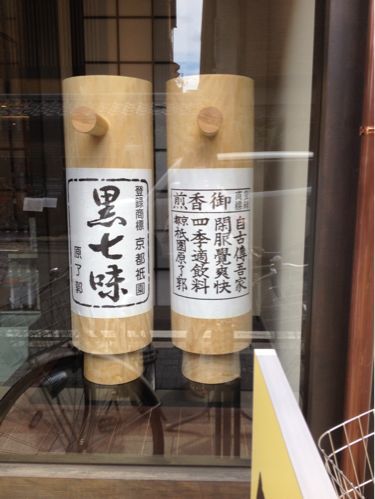 登録商標 京都祇園
黒七味
原了郭
登録商標
御香煎
自古傳吾家
閑服覺爽快
四季適飲料
京都祇園原了郭